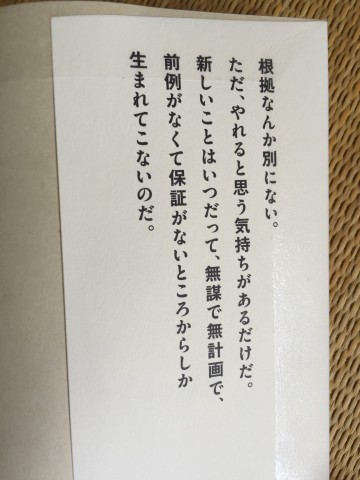 根拠なんか別にない。
ただ、やれると思う気持ちがあるだけだ。
新しいことはいつだって、無謀で無計画で、
前例がなくて保証がないところからしか
生まれてこないのだ。